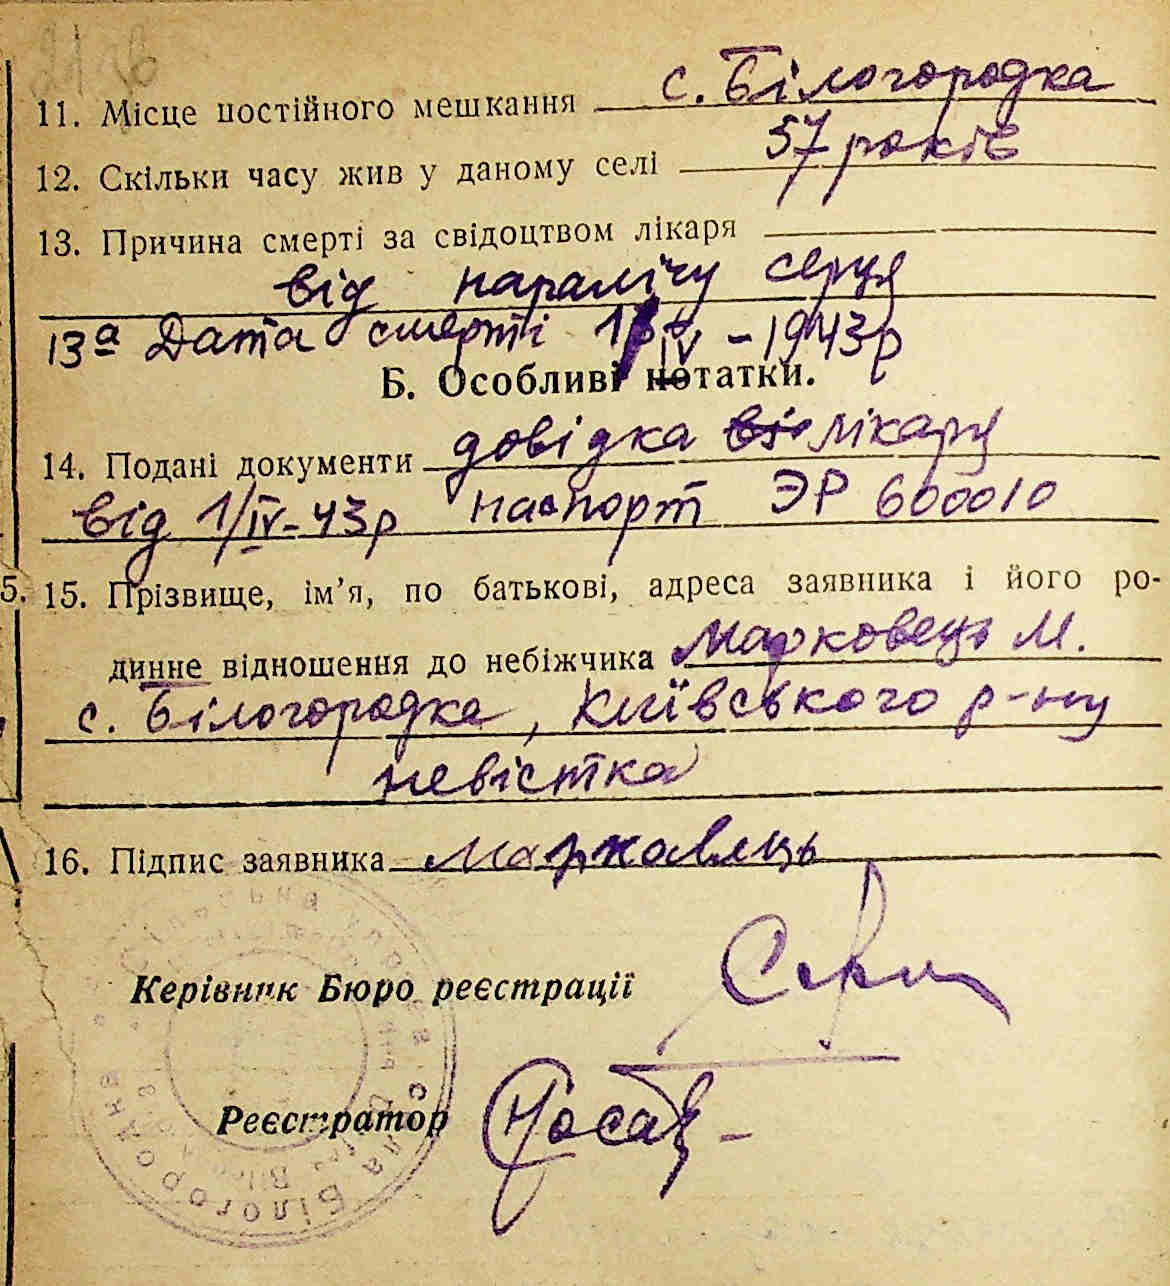 11. Місце постійного мешкання с. Білогородка
12. Скільки часу жив у даному селі 57 років
13. Причина смерті за свідоцтвом лікаря
від паралічу серця
13а Дата смерті IV - 1943 р
Б. Особливі нотатки.
14. Подані документи довідка лікаря
від 1/IV-43р паспорт ЭР 600010
5. 15. Прізвище, ім'я, по батькові, адреса заявника і його ро-
динне відношення до небіжчика Марковець М.
с. Білогородка, Київського р-ну
невістка
16. Підпис заявника Марковець
Керівник Бюро реєстрації
Реєстратор Носač